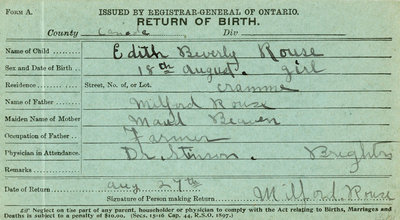 FORM A. ISSUED BY REGISTRAR-GENERAL OF ONTARIO.
RETURN OF BIRTH.
County Canada Div
Name of Child Edith Beverly Rouse
Sex and Date of Birth 18th August. girl
Residence Street, No. of, or Lot. cramme
Name of Father Milford Rouse
Maiden Name of Mother Maud Beaven
Occupation of Father Farmer
Physician in Attendance. Dr. Stinson. Brighton
Remarks
Date of Return aug 27th
Signature of Person making Return Milford. Rouse
Neglect on the part of any parent, householder or physician to comply with the Act relating to Births, Marriages and
Deaths is subject to a penalty of $10.00. (Secs. 15-16 Cap. 44, R.S.O. 1897.)